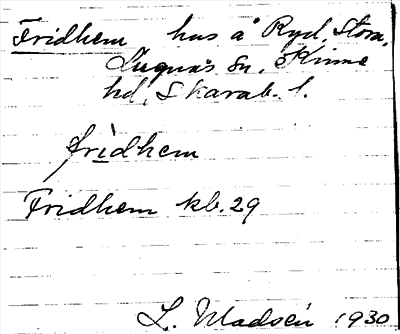 Fridhem hus å Ryd, Stora,
Lugnås sn, Kinne
hd, Skarab. l.
fridhem
Fridhem kb. 29
L. Madsén 1930